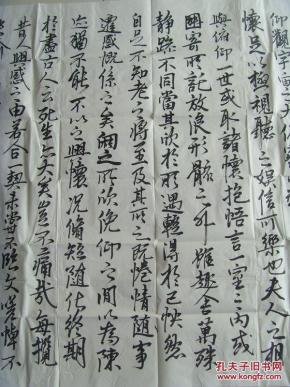 仰觀宇宙之大俯察品
懷足以極視聽之娛信可樂也夫人之相
與俯仰一世或取諸懷抱悟言一室之內或
因寄所託放浪形骸之外雖趣舍萬殊
靜躁不同當其欣於所遇輒得於己怏然
自足不知老之將至及其所之既倦情隨事
遷感慨係之矣向之所欣俛仰之間以為陳
迹猶不能不以之興懷況脩短隨化終期
於盡古人云死生亦大矣豈不痛哉每攬
昔人興感之由若合一契未嘗不臨文嗟悼不